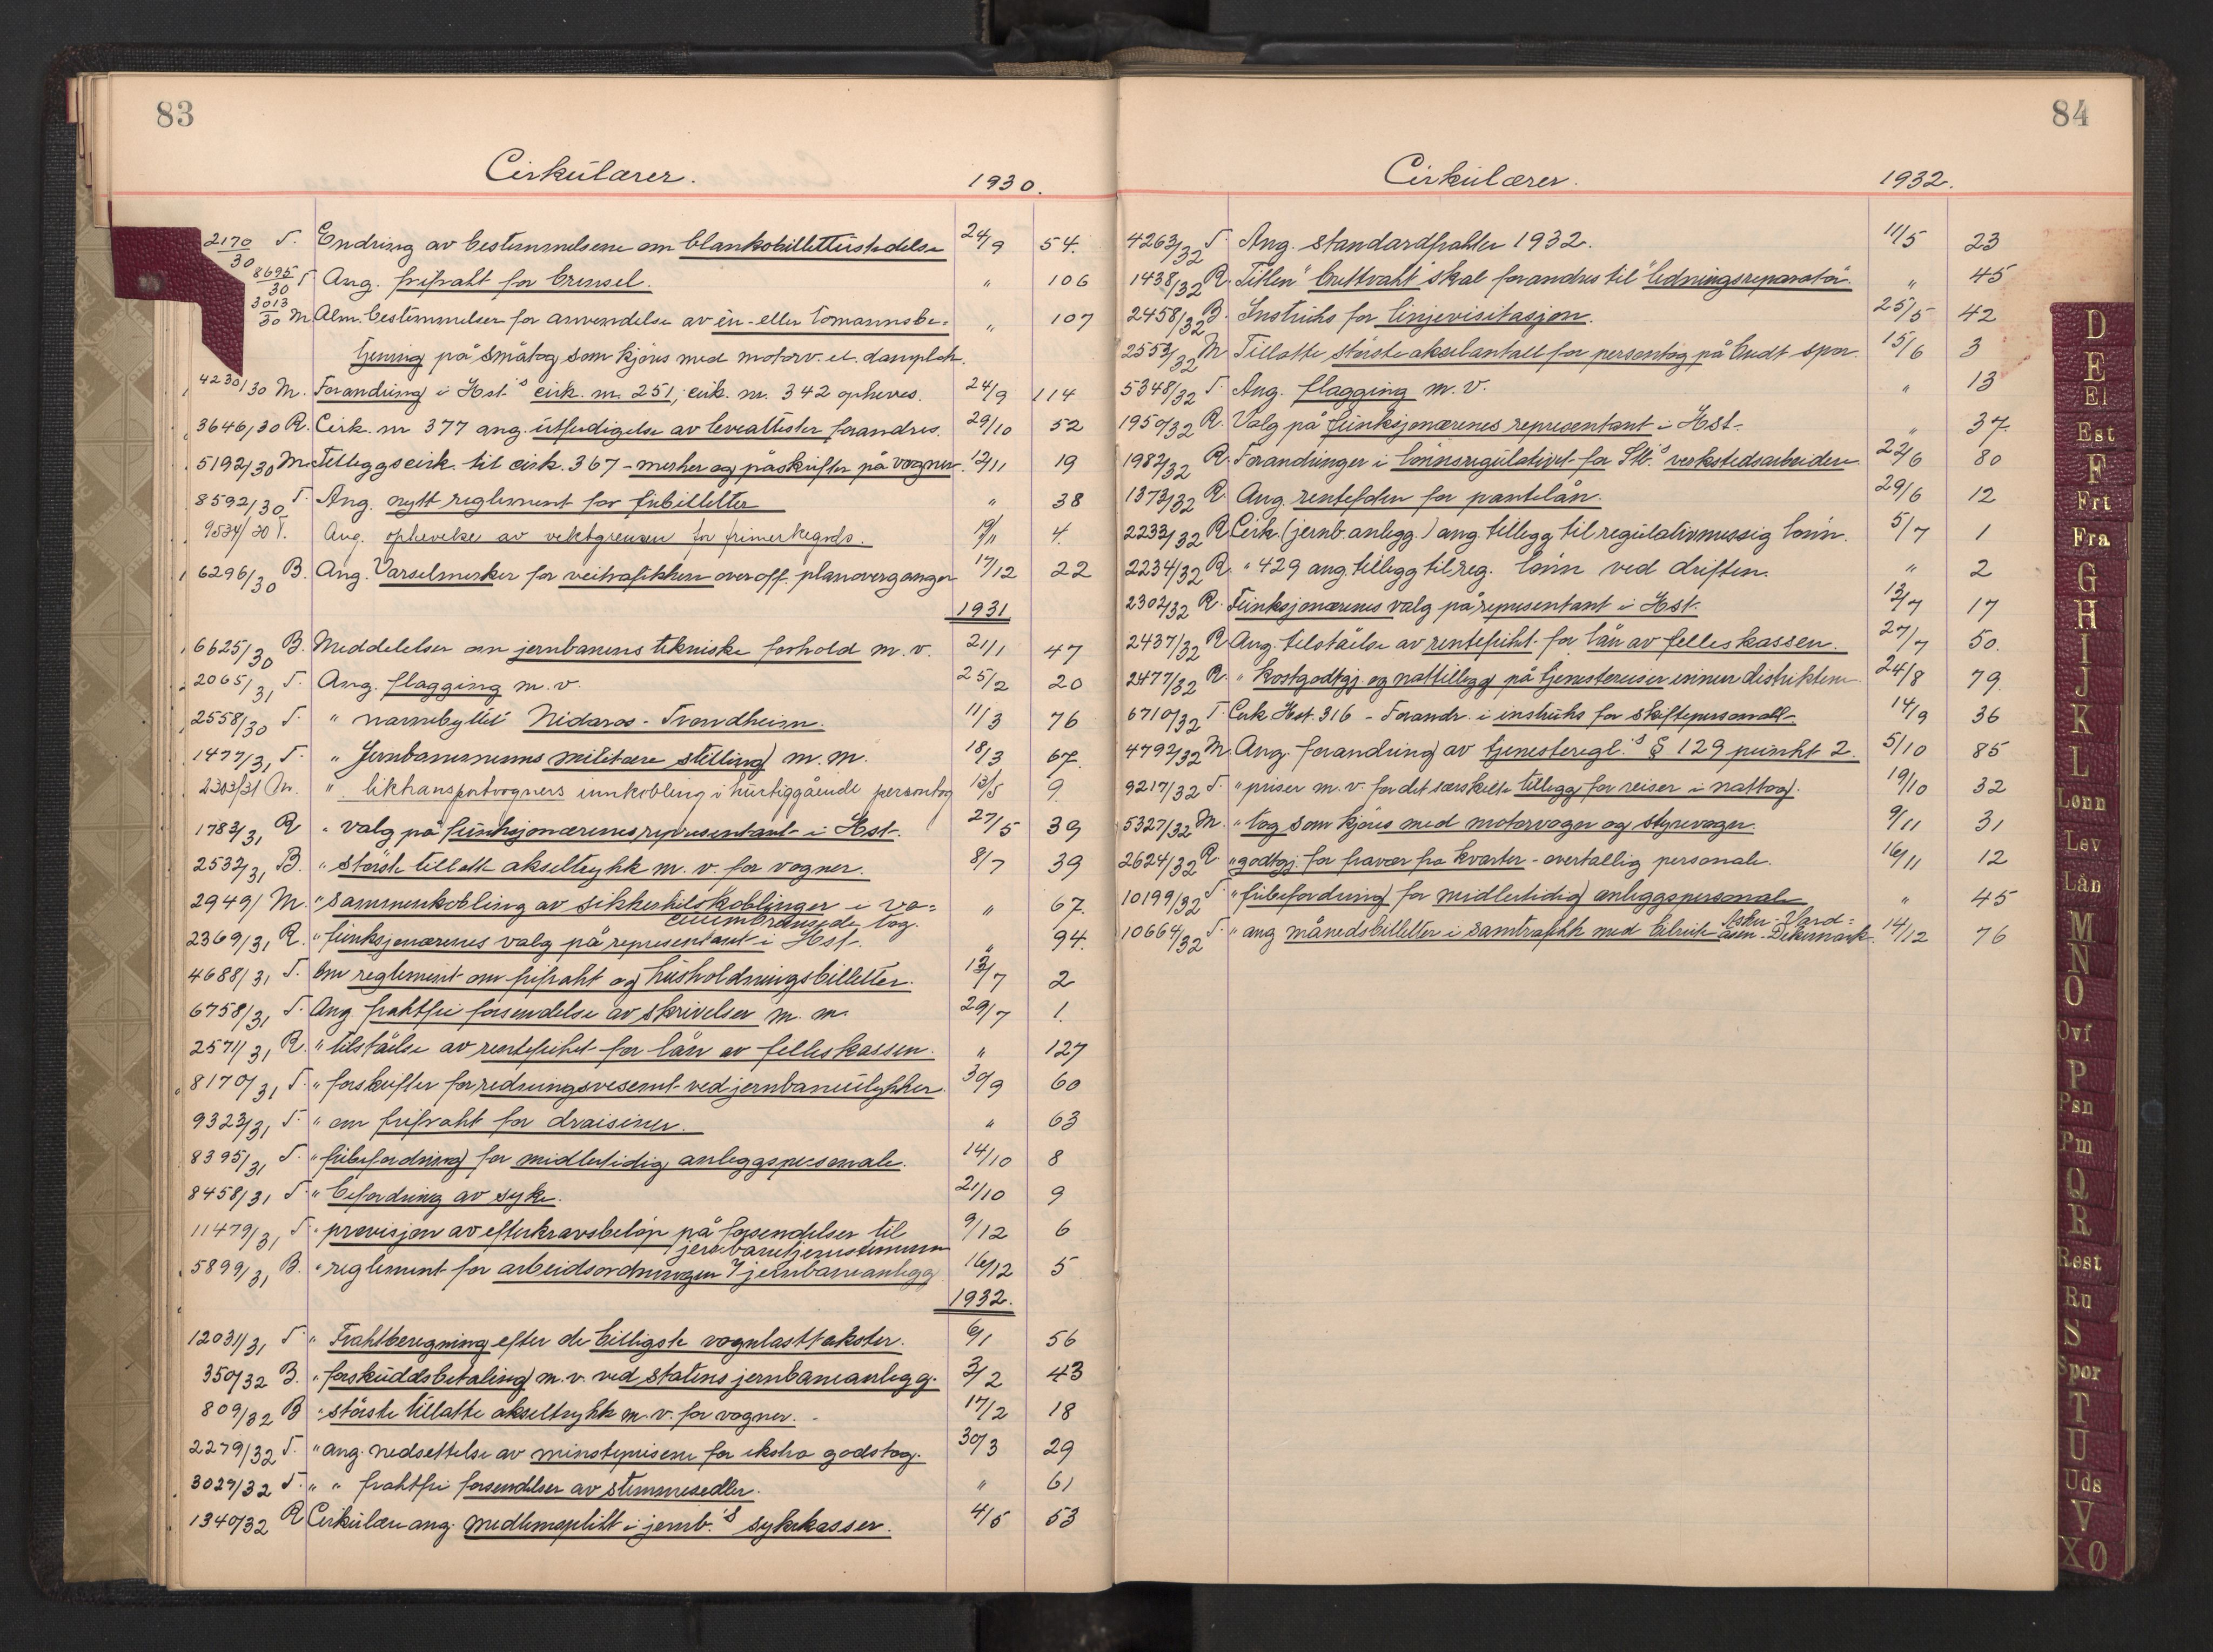 83
Cirkulærer. 1930.
2170/30 T. Endring av bestemmelsene om blankobillettutstedelse 24/9 54.
8695/30 T Ang. frifrakt for brensel. " 106
3013/30 M. Alm. bestemmelser for anvendelse av en- eller tomannsbe= " 107
tjening på småtog som kjøres med motorv. el. damplok.
4230/30 M. Forandring i Hst.'s cirk. nr. 251, cirk. nr. 342 opheves. 24/9 114
3646/30 R. Cirk. nr 377 ang. utferdigelse av legeattester forandres. 29/10 52
5192/30 M. Tilleggscirk. til cirk. 367 - merker og påskrifter på vogner. 12/11 19
8592/30 T. Ang. nytt reglement for fribilletter " 38
9534/30 T. Ang. ophevelse av vektgrensen for frimerkegods. 19/11 4.
6296/30 B. Ang. Varselmerker for veitrafikken over off. planoverganger 17/12 22
1931
6625/30 B. Meddelelser om jernbanens tekniske forhold m. v. 21/1 47
2065/31 T. Ang. flagging m. v. 25/2 20
2558/30 T. " navnebyttet Nidaros - Trondheim. 11/3 76
1477/31 T. " Jernbanemenns militære stilling m. m. 18/3 67.
2303/31 M. " liktransportvogners innkobling i hurtiggående persontog 13/5 9.
1783/31 R " valg på funksjonærenes representant i Hst. 27/5 39
2532/31 B. " største tillatte akseltrykk m. v. for vogner. 8/7 39
2949/ M. " sammenkobling av sikkerhetskoblinger i va= " 67.
cuumbremsede tog.
2369/31 R. " funksjonærenes valg på representant i Hst. " 94.
4688/31 T. Om reglement om frifrakt og husholdningsbilletter. 13/7 2
6758/31 T. Ang. fraktfri forsendelse av skrivelser m. m. 29/7 1.
2571/31 R. " tilståelse av rentefrihet for lån av felleskassen. " 127
8170/31 T. " forskrifter for redningsvesenet ved jernbaneulykker. 30/9 60
9323/31 T. " om frifrakt for draisiner. " 63
8395/31 T. " fribefordring for midlertidig anleggspersonale. 14/10 8
8458/31 T " befordring av syke. 21/10 9
11479/31 T. " provisjon av efterkravsbeløp på forsendelser til 9/12 6
jernbanetjenestemenn
5899/31 B. " reglement for arbeidsordningen v/ jernbaneanlegg 16/12 5
1932.
12031/31 T. " Fraktberegning efter de billigste vognlasttakster. 6/1 56
350/32 B. " forskuddsbetaling m. v. ved statens jernbaneanlegg. 3/2 43
809/32 B " største tillatte akseltrykk m. v. for vogner. 17/2 18
2279/32 T. " ang. nedsettelse av minsteprisene for ekstra godstog. 30/3 29
3027/32 T. " " fraktfri forsendelser av stemmesedler. " 61
1340/32 R Cirkulære ang. medlemsplikt i jernb.'s sykekasser. 4/5 53
84
Cirkulærer. 1932.
4263/32 T. Ang. standardfrakter 1932. 11/5 23
1438/32 R. Titlen "brettvakt" skal forandres til "ledningsreparatør". " 45
2458/32 B. Instruks for linjevisitasjon. 25/5 42
2553/32 M Tillatte største akselantall for persontog på bredt spor. 15/6 3
5348/32 T. Ang. flagging m. v. " 13
1950/32 R. Valg på funksjonærenes representant i Hst. " 37.
1982/32 R. Forandringer i lønnsregulativet for Stb.'s verkstedsarbeidere 22/6 80
1373/32 R. Ang. rentefoten for pantelån. 29/6 12
2233/32 R Cirk. (jernb. anlegg.) ang. tillegg til regulativmessig lønn. 5/7 1
2234/32 R. " 429 ang. tillegg til reg. lønn ved driften. " 2
2302/32 R. Funksjonærenes valg på representant i Hst. 13/7 17
2437/32 R Ang. tilståelse av rentefrihet for lån av felleskassen. 27/7 50.
2477/32 R. " kostgodtgj. og nattillegg på tjenestereiser innen distriktene 24/8 79.
6710/32 T Cirk Hst. 316 - Forandr. i instruks for skiftepersonalet 14/9 36
4792/32 M Ang. forandring av tjenesteregl.'s § 129 punkt 2. 5/10 85
9217/32 T. " priser m. v. for det særskilte tillegg for reiser i nattog. 19/10 32
5327/32 M. " tog som kjøres med motorvogn og styrevogn. 9/11 31
2624/32 R. " godtgj. for fravær fra kvarter - overtallig personale. 16/11 12
10199/32 T. " fribefordring for midlertidig anleggspersonale " 45
10664/32 T. " ang månedsbilletter i samtrafikk med bilrute Asker - Vard=
åsen - Dikemark. 14/12 76
D
E
El
Est
F
Frt
Fra
G
H
I
J
K
L
Lønn
Lev
Lån
M
N
O
Ovf
P
Psn
Pm
Q
R
Rest
Rn
S
Spor
T
U
Uds
V
XØ